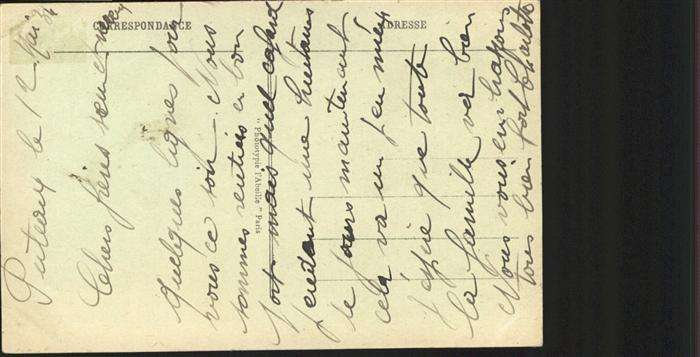 CORRESPONDANCE
ADRESSE
"Phototypie l'Abeille" Paris
Puteaux le 12 Mai
Chers frères sœur
quelques lignes pour
vous ce soir. Nous
sommes rentrés a bon
port mais quel cafard
pendant une huitaine
de jours maintenant
cela va un peu mieux
J'espère que toute
la famille va bien
Nous vous embrassons
tous bien fort